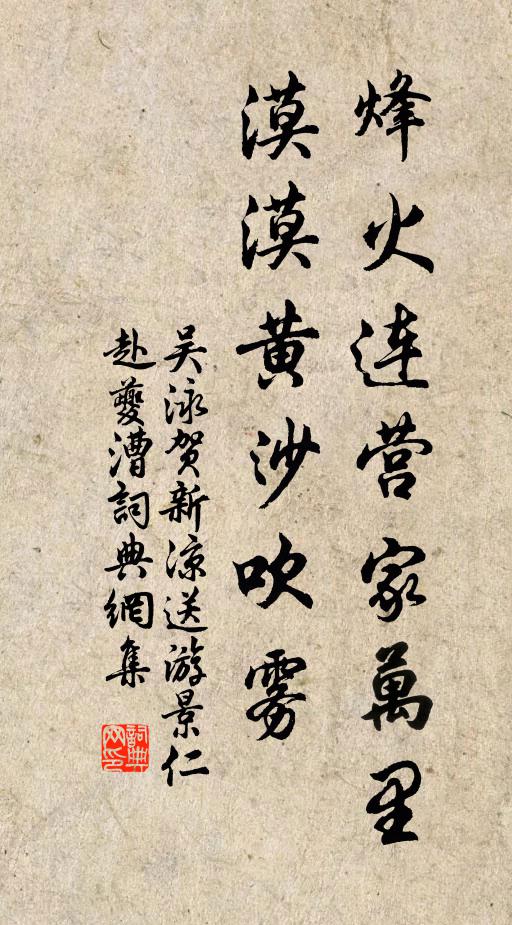 烽火连营家萬里
漠漠黄沙吹雾
吴泳贺新凉送游景仁
赴夔漕詞典網集
詞典网印